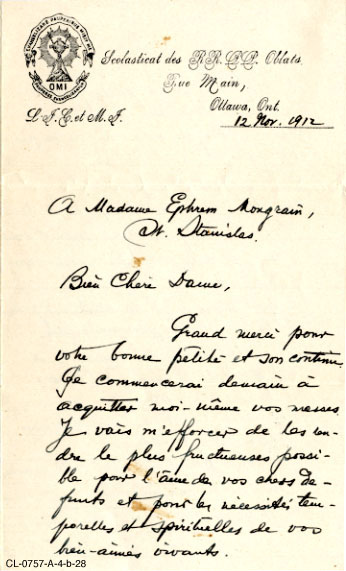 OMI
Scolasticat des RR. PP. Oblats
Rue Main,
Ottawa, Ont.
L. J. C. et M. I.
12 Nov. 1912
A Madame Ephrem Mongrain,
St. Stanislas.
Bien Chère Dame,
Grand merci pour
votre bonne petite et son contenu.
Je commencerai demain à
acquitter moi-même vos messes.
Je vais m'efforcer de les ren-
dre le plus fructueuses possi-
ble pour l'âme de vos chers dé-
funts et pour les nécessités tem-
porelles et spirituelles de vos
bien-aimés vivants.
CL-0757-A-4-b-28